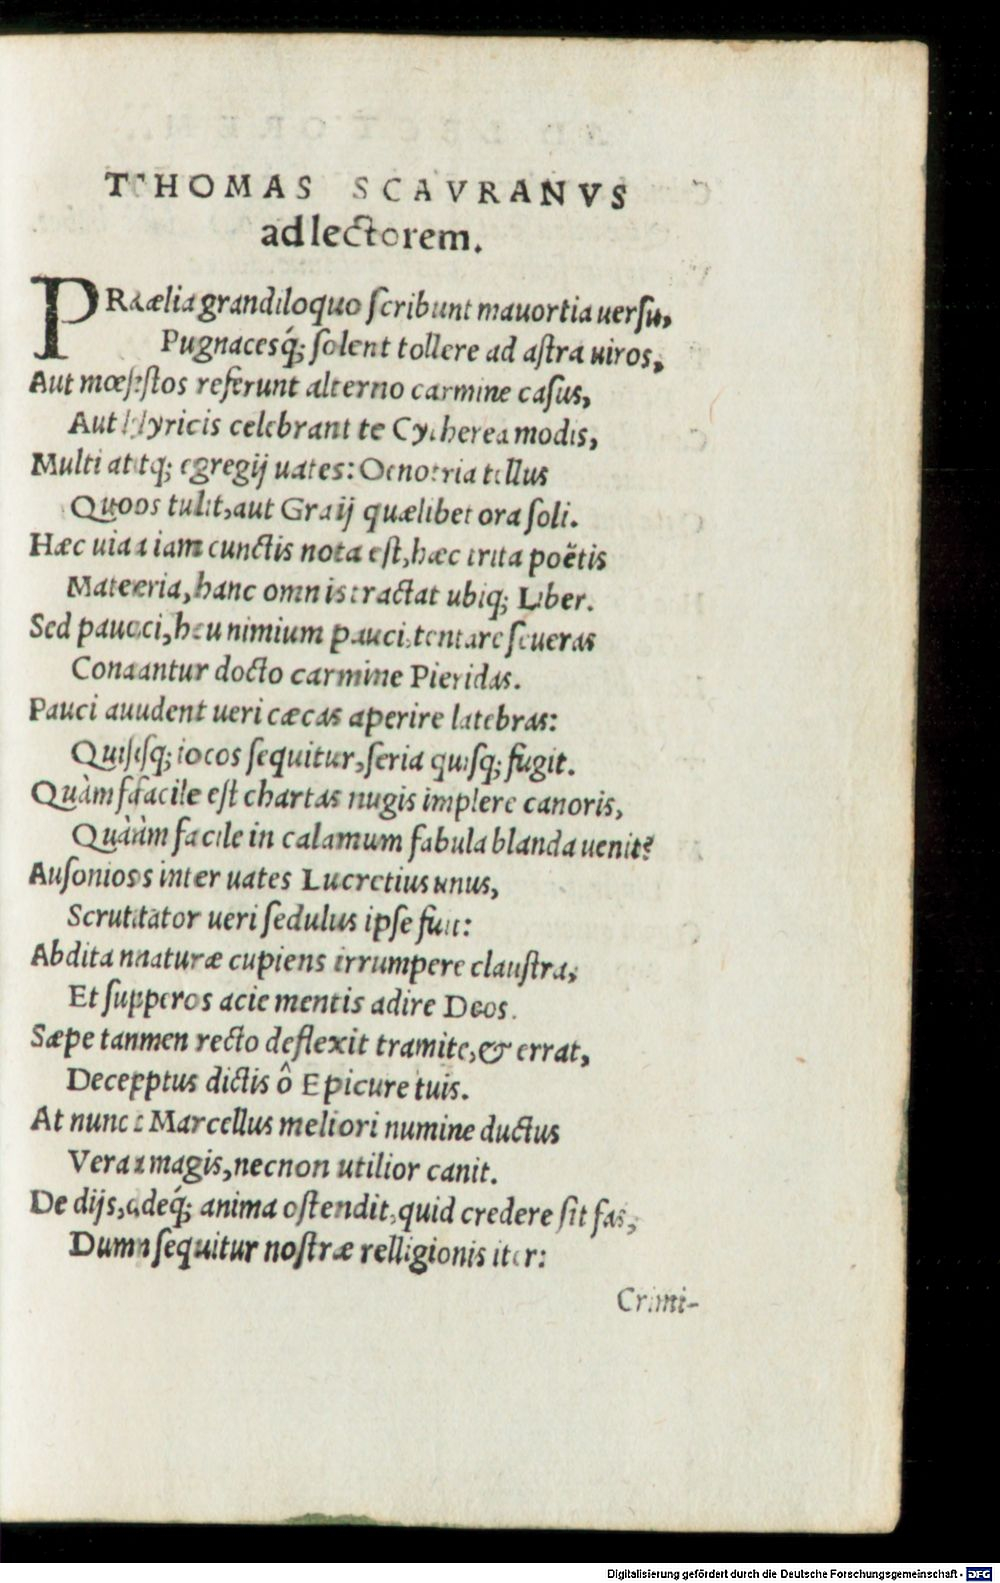 THOMAS SCAVRANVS
ad lectorem.
PRælia grandiloquo scribunt mauortia uersu,
Pugnacesq́; solent tollere ad astra uiros,
Aut mœstos referunt alterno carmine casus,
Aut lyricis celebrant te Cytherea modis,
Multi atq; egregij uates: Oenotria tellus
Quos tulit, aut Graij quælibet ora soli.
Hæc uia iam cunctis nota est, hæc trita poëtis
Materia, hanc omnis tractat ubiq; Liber.
Sed pauci, heu nimium pauci, tentare seueras
Conantur docto carmine Pieridas.
Pauci audent ueri cæcas aperire latebras:
Quisq; iocos sequitur, seria quisq; fugit.
Quàm facile est chartas nugis implere canoris,
Quàm facile in calamum fabula blanda uenit?
Ausonios inter uates Lucretius unus,
Scrutator ueri sedulus ipse fuit:
Abdita naturæ cupiens irrumpere claustra,
Et superos acie mentis adire Deos.
Sæpe tamen recto deflexit tramite, & errat,
Deceptus dictis ô Epicure tuis.
At nunc Marcellus meliori numine ductus
Vera magis, necnon utilior canit.
De dijs, deq́; anima ostendit, quid credere sit fas,
Dum sequitur nostræ relligionis iter:
Crimi-
Digitalisierung gefördert durch die Deutsche Forschungsgemeinschaft - DFG